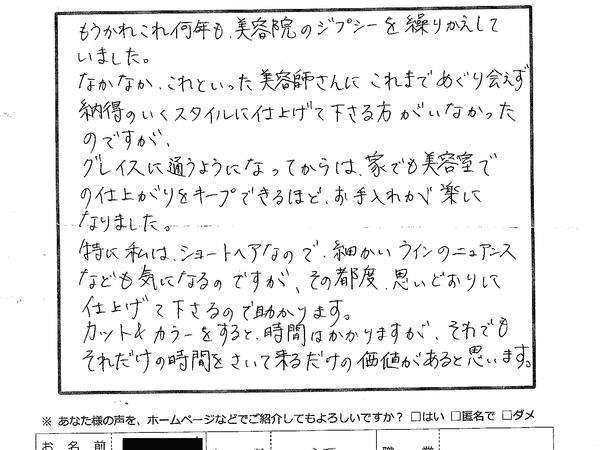 もうかれこれ何年も、美容院のジプシーを繰りかえして
いました。
なかなか、これといった美容師さんに これまでめぐり会えず
納得のいくスタイルに仕上げて下さる方 がいなかった
のですが、
グレイスに通うようになってからは、家でも美容室で
の仕上がりをキープできるほど、お手入れが 楽に
なりました。
特に 私は、ショートヘアなので、細かい ラインのニュアンス
なども気になるのですが、その都度、思いどおりに
仕上げて下さるので助かります。
カット&カラーをすると、時間はかかりますが、それでも
それだけの時間をさいて来るだけの価値があると思います。
※ あなた様の声を、ホームページなどでご紹介してもよろしいですか？ □はい □匿名で □ダメ
お名前